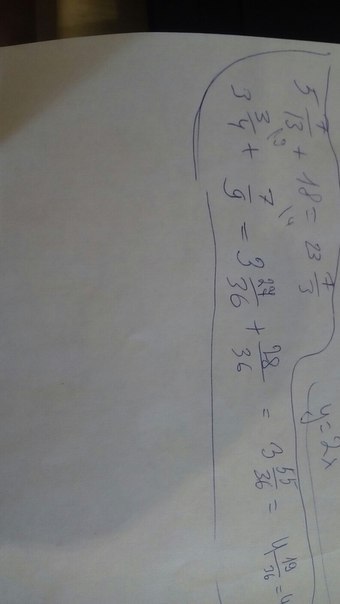 5 7/13 + 18 = 23 7/3
3 3/4 \9 + 7/9 \4 = 3 27/36 + 28/36 = 3 55/36 = 4 19/36 = 4
y = 2x